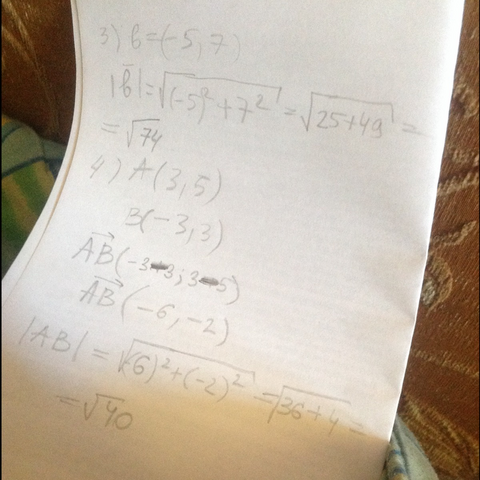 3) b=(-5,7)
|b̄|=√((-5)²+7²)=√(25+49)=
=√74
4) A(3,5)
B(-3,3)
AB⃗(-3-3;3-5)
AB⃗(-6,-2)
|AB|=√(-6)²+(-2)²=√(36+4)=
=√40